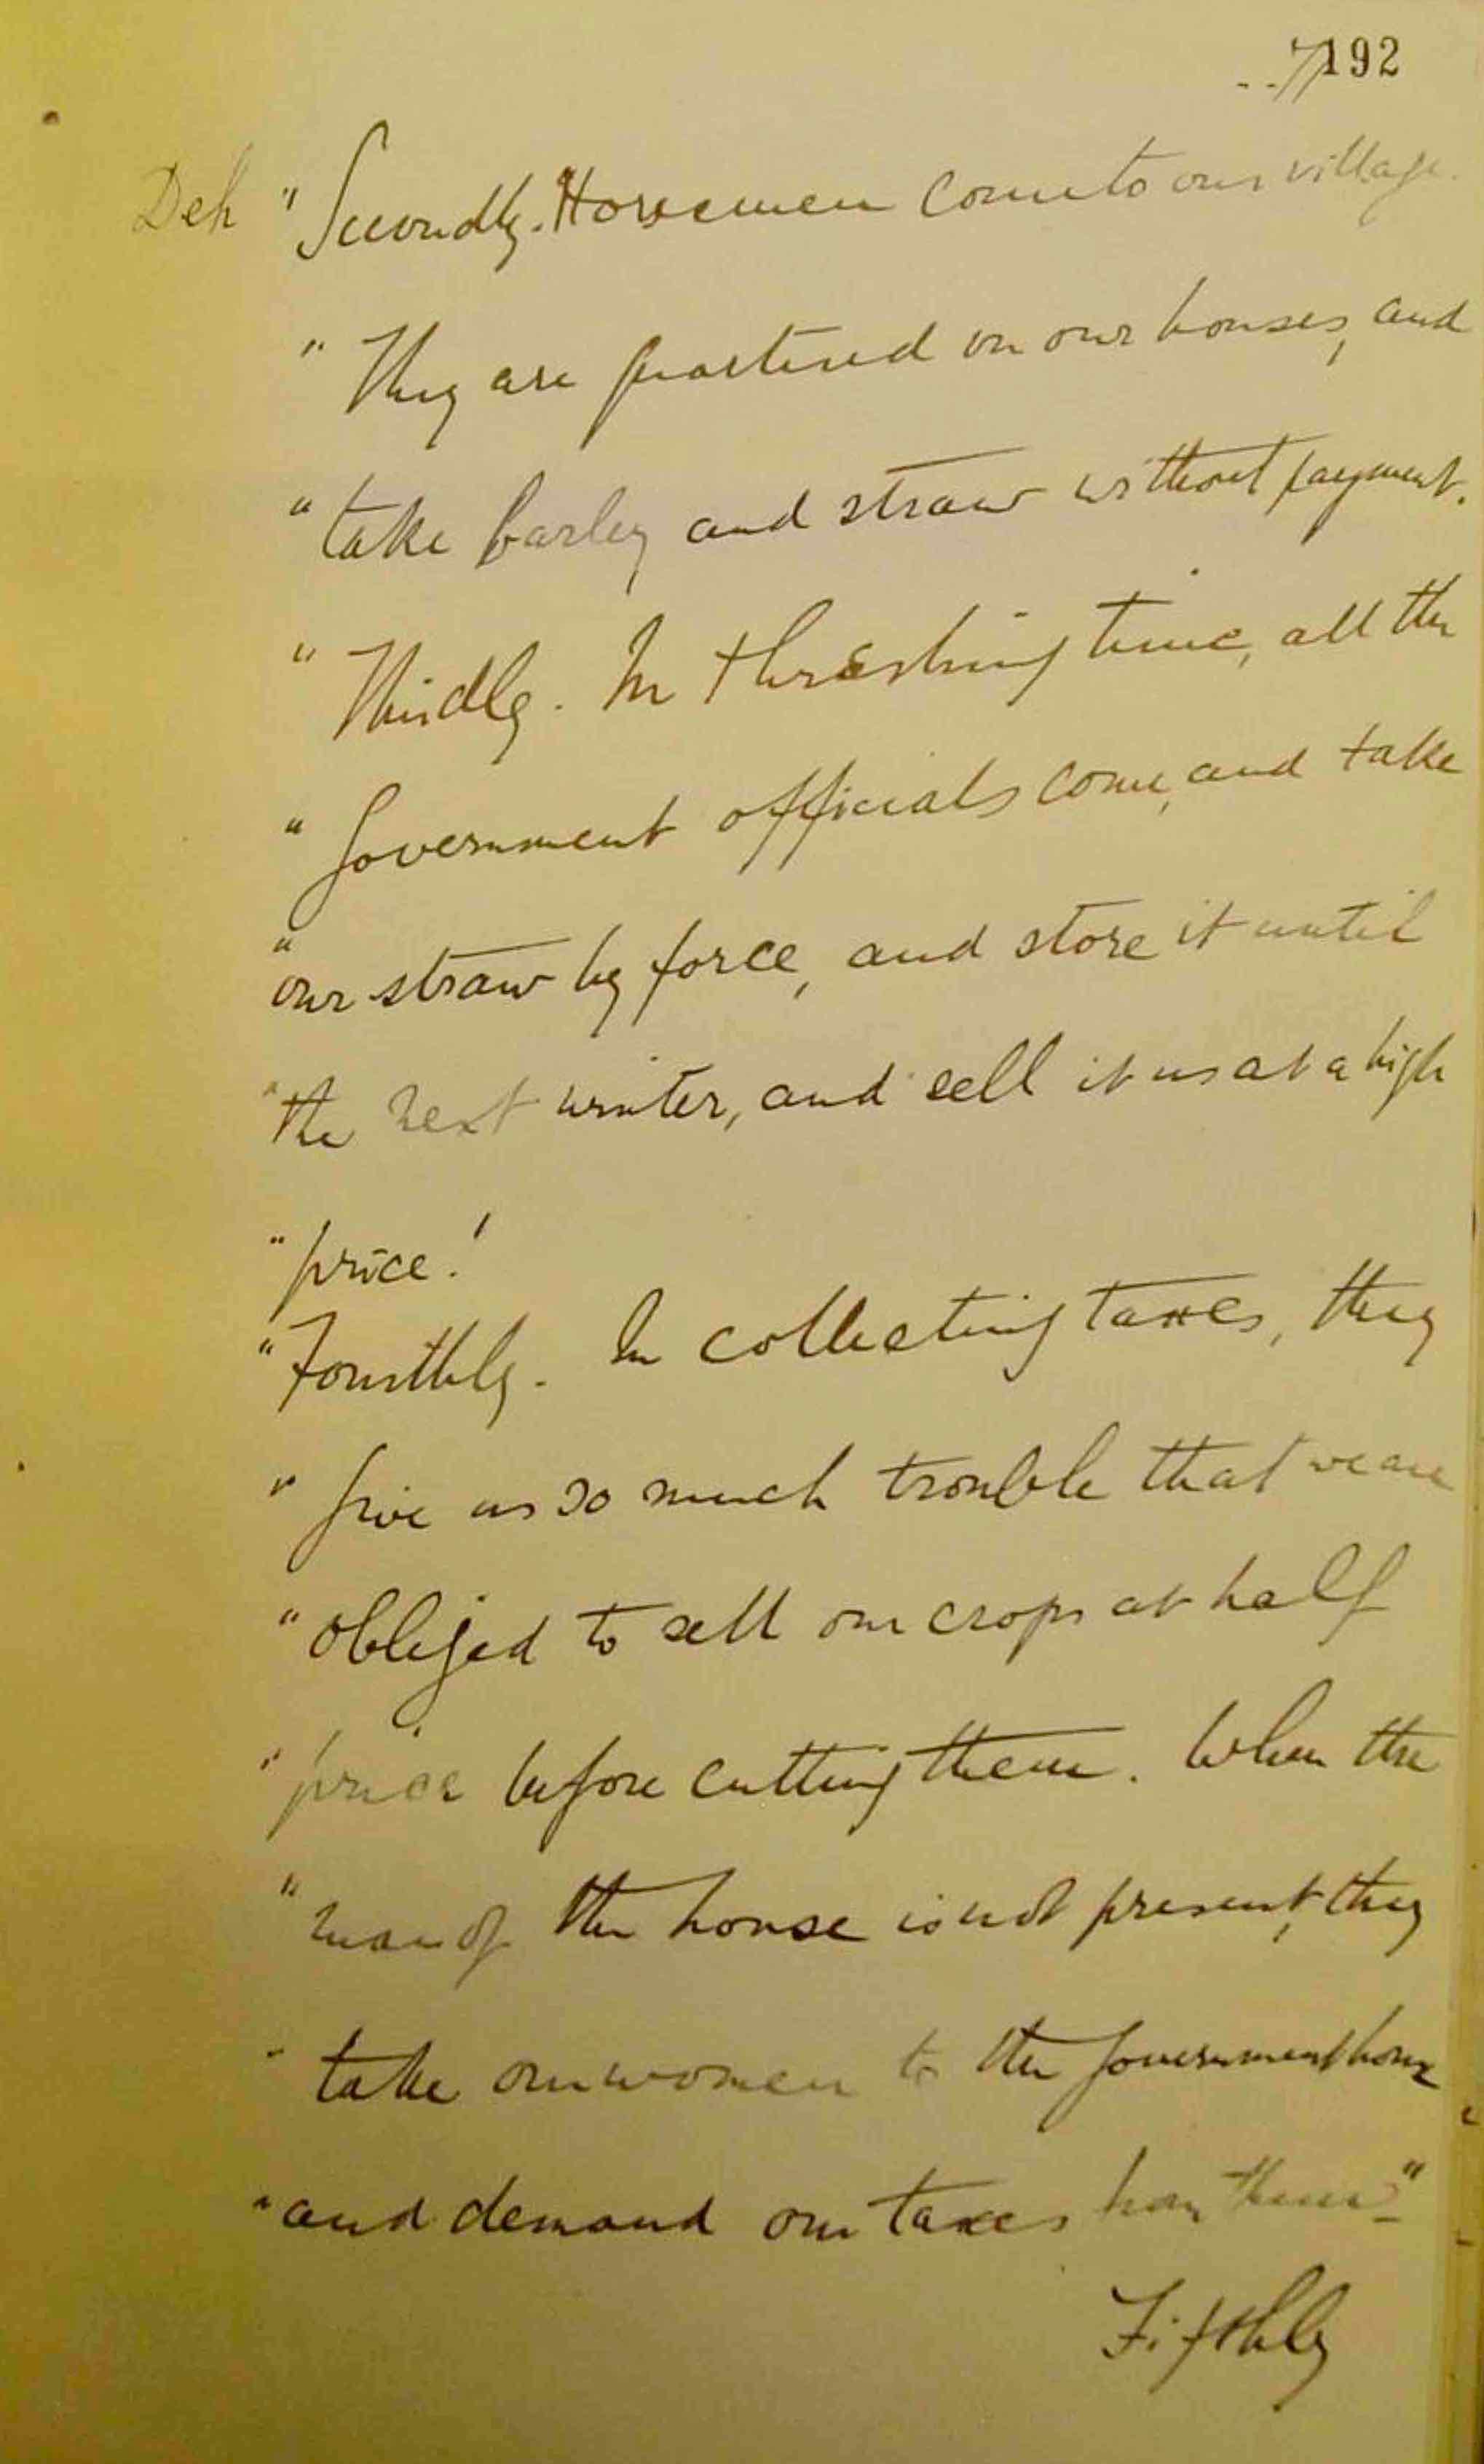 7192
Deh "Secondly. Horsemen come to our village.
" They are quartered on our houses, and
" take barley and straw without payment.
" Thirdly. In threshing time, all the
" Government officials come, and take
" our straw by force, and store it until
" the next winter, and sell it us at a high
" price!
" Fourthly. In collecting taxes, they
" give us so much trouble that we are
" obliged to sell our crops at half
" price before cutting them. When the
" man of the house is not present, they
" take our women to the Government house
" and demand our taxes from them"
Fifthly